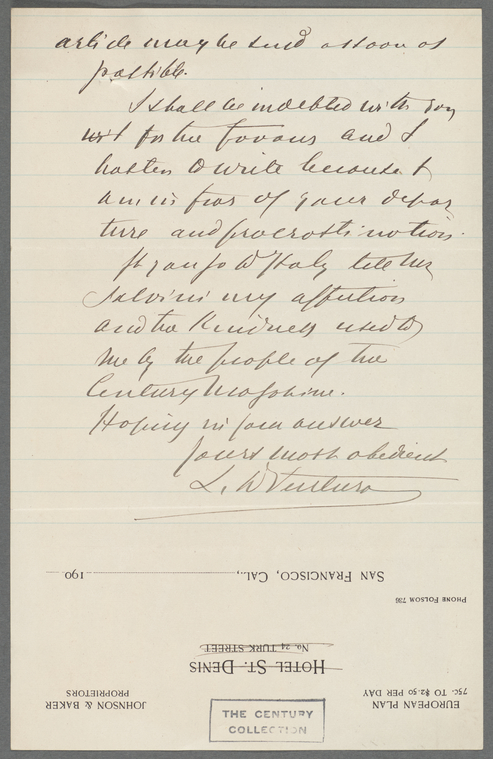 article may be send as soon as
possible.
I shall be indebted with you
for the favour and I
hasten to write because I
am in fear of your depar
ture and procrastination.
If you go to Italy tell Mr
Salvini my affection
and the kindness used to
me by the people of the
Century Magazine.
Hoping in your answer
yours most obedient
L. D Ventura
SAN FRANCISCO, CAL., 190
PHONE FOLSOM 736
HOTEL ST. DENIS
No. 24 TURK STREET
EUROPEAN PLAN
75c. TO $2.50 PER DAY
JOHNSON & BAKER
PROPRIETORS
THE CENTURY
COLLECTION